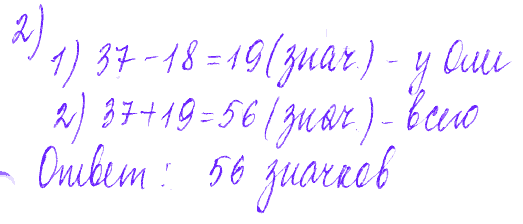 2)
1) 37-18=19 (знач.) - у Оли
2) 37+19=56 (знач.) - всего
Ответ: 56 значков